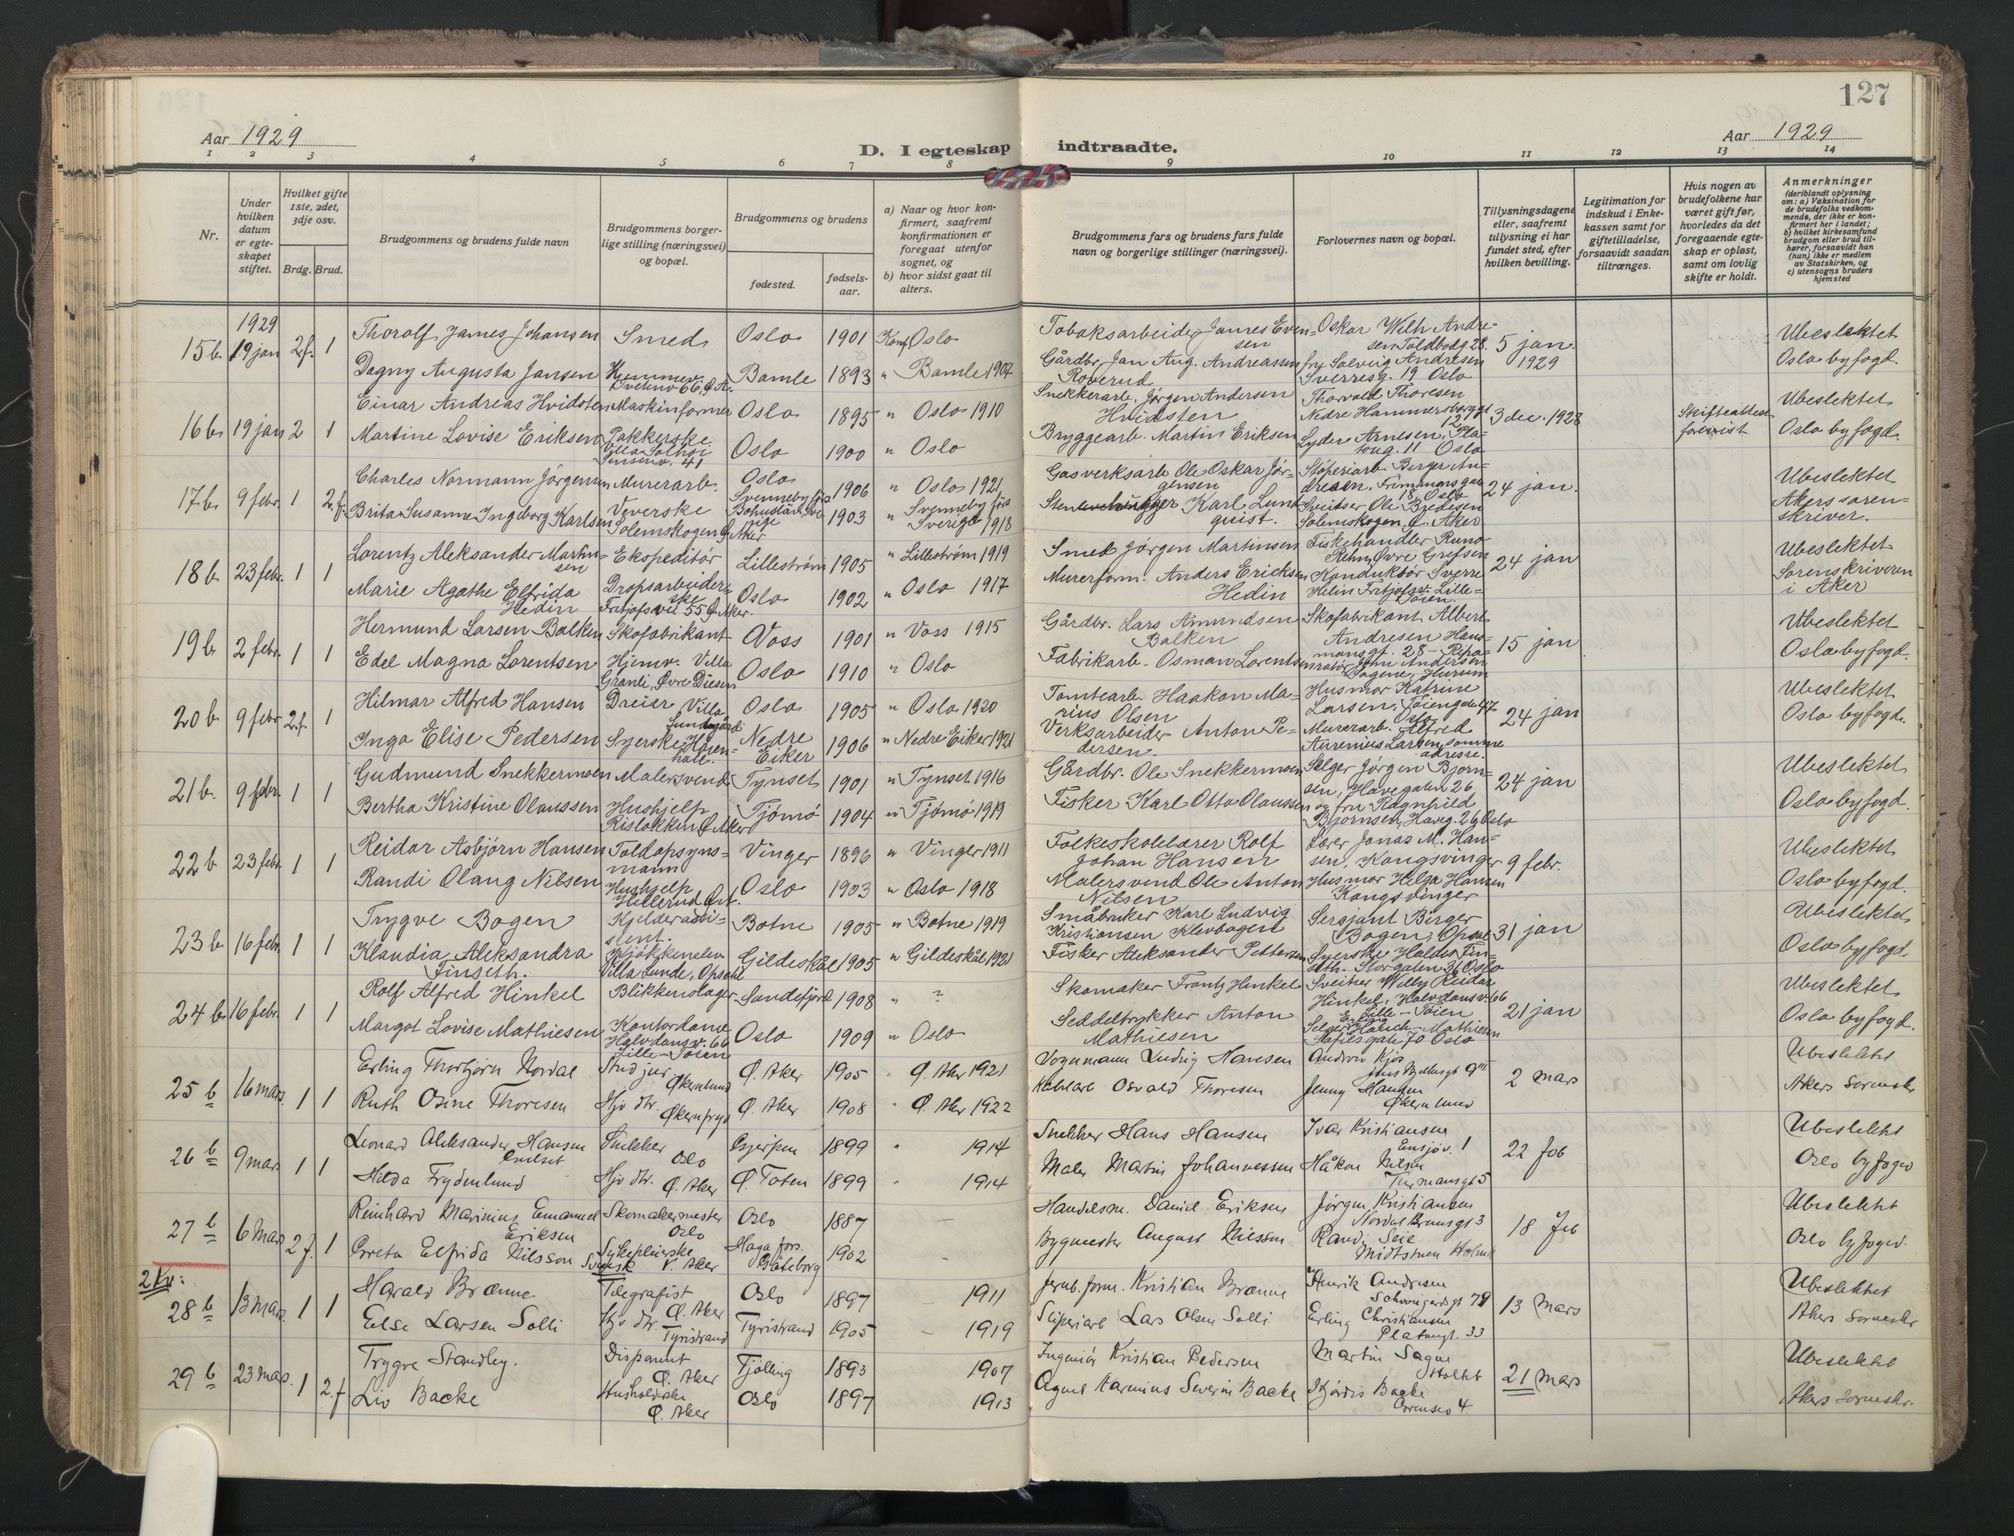 127
Aar 1929
D. I egteskap indtraadte.
Aar 1929
1 2 3 4 5 6 7 8 9 10 11 12 13 14
Nr.
Under hvilken datum er egteskapet stiftet.
Hvilket gifte 1ste, 2det, 3dje osv.
Brdg. Brud.
Brudgommens og brudens fulde navn
Brudgommens borgerlige stilling (næringsvei) og bopæl.
Brudgommens og brudens
fødested.
fødselsaar.
a) Naar og hvor konfirmert, saafremt konfirmationen er foregaat utenfor sognet, og
b) hvor sidst gaat til alters.
Brudgommens fars og brudens fars fulde navn og borgerlige stillinger (næringsvei).
Forlovernes navn og bopæl.
Tillysningsdagene eller, saafremt tillysning ei har fundet sted, efter hvilken bevilling.
Legitimation for indskud i Enkekassen samt for giftetilladelse, forsaavidt saadan tiltrænges.
Hvis nogen av brudefolkene har været gift før, hvorledes da det foregaaende egteskap er opløst, samt om lovlig skifte er holdt.
Anmerkninger (deriblandt oplysning om: a) Vaksination for de brudefolks vedkommende, der ikke er konfirmert her i landet; b) hvilket kirkesamfund brudgom eller brud tilhører, forsaavidt han (hun) ikke er medlem av Statskirken, og c) utensogns bruders hjemsted
1929
15 b. 19 jan 2.f. 1 Thorolf James Johansen Smed Oslo 1901 Konf Oslo Tobaksarbeider James Evensen Oskar Wilh Andresen Toldbodg. 28. 5 jan. 1929 Ubeslektet
Dagny Augusta Jansen Oslo Bamle 1893 " Bamle 1907 Gårdbr. Jan Aug. Andreassen Roverud fru Solvig Andresen Sverresg. 19 Oslo Oslo byfogd
16 b 19 jan 2 1 Einar Andreas Hvidsten Maskinformer Oslo 1895 " Oslo 1910 Snekkerarb. Jørgen Andersen Hvidsten Thorvald Thoresen Nedre Hammersborggt 12 3 dec. 1928 Skifteattest forevist Ubeslektet
Martine Lovise Eriksen Pakkerske Villa Solhoi Sinsenv. 41 Oslo 1900 " Oslo Bryggearb. Martin Eriksen Lyder Arnesen, Platoug. 11 Oslo Oslo byfogd.
17 b 9 febr. 1 2.f. Charles Normann Jörgensen Murerarb. Oslo 1906 " Oslo 1921 Gasverksarb Ole Oskar Jörgensen Stöperiarb Birger Andresen, 18 Oslo 24 jan. Ubeslektet
Brita Susanne Ingeborg Karlsen Veverske Solemskogen Ø. Aker Svenneby förs Bohuslän, Sverige 1903 " Svenneby förs Sverige 1918 Stenhugger Karl Lundquist. Sveitser Ole Bredesen Solemskogen, Ø. Aker Akers sorenskriver.
18 b. 23 febr. 1 1 Lorentz Aleksander Martinsen Ekspeditör Lillestrøm 1905 " Lillestrøm 1919 Smed Jörgen Martinsen Fiskehandler Øvre Grefsen 24 jan Ubeslektet
Marie Agathe Elfrida Hedin Dropsarbeiderske Fritjofsvei 55 Ø. Aker Oslo 1902 " Oslo 1917 Murerform. Anders Ericksen Hedin Konduktör Sverre Helin Fritjofsv. Lille-Töien. Sorenskriveren i Aker
19 b 2 febr. 1 1 Hermund Larsen Balken Skofabrikant Voss 1901 " Voss 1915 Gårdbr. Lars Amundsen Balken Skofabrikant Albert Andresen Hansmansgt. 28 15 jan Ubeslektet
Edel Magna Lorentsen Hjemv. Villa Granli, Øvre Disen Oslo 1910 " Oslo Fabrikarb. Osman Lorentsen Reparatör John Andersen Oslo byfogd.
20 b 9 febr 2.f. 1 Hilmar Alfred Hansen Dreier Villa Oslo 1905 " Oslo 1920 Tomtearb. Haakon Marius Olsen Husmor Katrine Larsen, Töiengaten 47 Oslo 24 jan Ubeslektet
Inga Elise Pedersen Syerske Nedre Eiker 1906 " Nedre Eiker 1921 Verksarbeider Anton Pedersen. Murerarb. Alfred Aurenius Larsen, samme adresse. Oslo byfogd.
21 b. 9 febr. 1 1 Gudmund Snekkermoen Malersvend Tynset 1901 " Tynset 1916 Gårdbr. Ole Snekkermoen Selger Jørgen Bjornsen, Havegaten 26 24 jan Ubeslektet
Bertha Kristine Olaussen Hushjelp Risløkken Ø. Aker Tjømø 1904 " Tjømø 1919 Fisker Karl Otto Olaussen og fru Ragnhild Bjornsen, Haveg. 26 Oslo Oslo byfogd.
22 b 23 febr. 1 1 Reidar Asbjörn Hansen Toldopsynsmann Vinger 1896 " Vinger 1911 Folkeskolelærer Rolf Johan Hansen Lærer Jonas M. Hansen, Kongsvinger 9 febr. Ubeslektet
Randi Olaug Nilsen Hushjelp Hillerud Oslo 1903 " Oslo 1918 Malersvend Ole Anton Nilsen Husmor Helga Hansen Kongsvinger Oslo byfogd.
23 b 16 febr. 1 1 Trygve Bogen Kjelderassistent. Botne 1905 " Botne 1919 Småbruker Karl Ludvig Kristiansen Klevbogen Sergjant Birger Bogen, Opsal 31 jan Ubeslektet
Klaudia Aleksandra Finseth. Kjøkkenelev Villa Lunde, Opsal Gildeskål 1905 " Gildeskål 1921 Fisker Aleksander Pettersen Syerske Haldis Finseth. Storgaten 36 Oslo Oslo byfogd.
24 b 16 febr. 1 1 Rolf Alfred Hinkel Blikkenslager Sandefjord 1908 " ? Skomaker Frantz Hinkel Sveiser Willy Reidar Hinkel, Halvdansv. 66 Lille-Töien 21 jan Ubeslektet
Margot Lovise Mathiesen, Kontordame Halvdansv. 66 Lille-Töien Oslo 1909 " Oslo Seddeltrykker Anton Mathiesen Selger Erling Hauch-Mathiesen Sofiesgate 70 Oslo Oslo byfogd.
25 b 16 mars. 1 1 Erling Thorbjörn Nordal Økernlund Ø. Aker 1905 " Ø. Aker 1921 Vognmann Ludvig Hansen 2 mars Ubeslektet
Ruth Osine Thoresen Hjv dtr. Ø. Aker 1908 " Ø. Aker 1922 Osvald Thoresen Jenny Hansen Økernlund Akers Sorenskr
26 b 9 mars 1 1 Leonard Aleksander Hansen Snekker Oslo Gjerpen 1899 " 1914 Snekker Hans Hansen Ivar Kristiansen Ensjøv. 1 22 feb Ubeslektet
Hilda Frydenlund Hjv dtr. Ø. Aker Ø. Toten 1899 " 1914 Maler Martin Johannessen Håkon Nilsen Oslo byfogd
27 b 6 Mars 2 f. 1 Reinhard Marinius Emanuel Eriksen Skomakermester Oslo Oslo 1887 – Handelsm. Daniel Eriksen Jörgen Kristiansen 18 feb Ubeslektet
Greta Elfrida Nilsson Sykepleierske Svensk V. Aker Haga fors. Göteborg 1902 Bygmester August Nilsson Randi Seie Midtstuen Oslo byfogd.
2 Kv:
28 b 13 mars 1 1 Harald Brænne Telegrafist Ø. Aker Oslo 1897 – 1911 Jernb. form. Kristian Brænne Henrik Andresen Schweigaardsgt 79 13 mars Ubeslektet
Else Larsen Solli Hjv dtr. Tyristrand Tyristrand 1905 – 1919 Sliperiarb Lars Olsen Solli Erling Christiansen Platousgt. 33 Akers Sorenskr
29 b 23 mars. 1 2.f Trygve Standley. Disponent Ø. Aker Tjølling 1893 1907 Ingeniör Kristian Pedersen Martin Sagen 21 mars Ubeslektet
Liv Backe Ø. Aker Oslo 1897 1913 Agent Karenius Severin Backe Hjördis Backe 4 Akers Sorenskr.